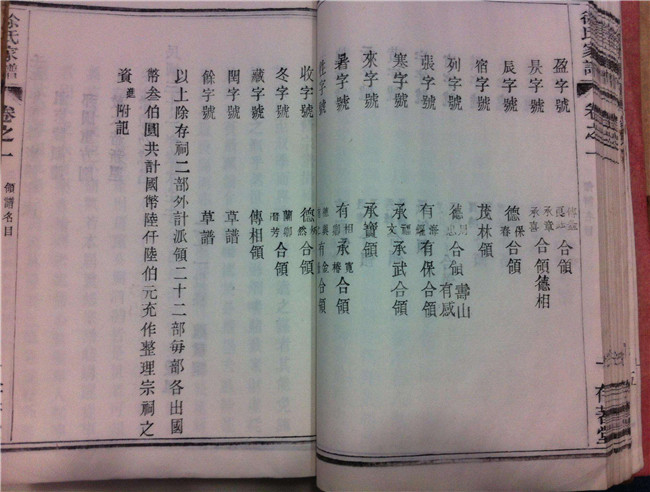 徐氏家譜 卷之一 領譜名目
盈字號 合領
昃字號 承章 承喜 合領 德相
辰字號 德保 春 合領
宿字號 茂林領
列字號 德 合領 壽山 有感
張字號 有海 有保合領
寒字號 承 文 承武合領
來字號 承寶領
暑字號 有相 彭 承寬 椿 合領
字號 有 金
收字號 德 然 合領
冬字號 蘭彭 潛芳 合領
藏字號 傳相領
閏字號 草譜
餘字號 草譜
以上除存祠二部外計派領二十二部每部各出國
幣叁伯圓共計國幣陸仟陸伯元充作整理宗祠之
資 附記
徐氏家譜 卷之一 領譜名目